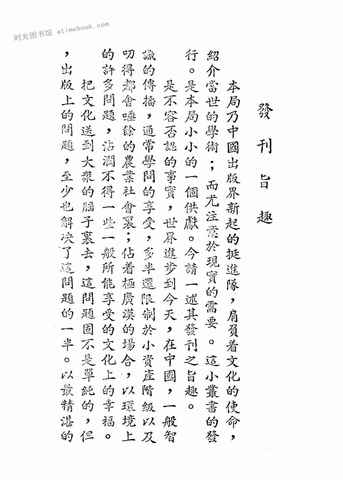 时光图书馆 alimebook.com
發刊旨趣
本局乃中國出版界新起的挺進隊，肩負着文化的使命，
紹介當世的學術；而尤注意於現實的需要。這小叢書的發
行。是本局小小的一個供獻。今請一述其發刊之旨趣。
是不容否認的事實，世界進步到今天，在中國，一般智
識的傳播，通常學問的享受，多半還限制於小資產階級以及
叨得都會唾餘的農業社會裏；佔着極廣漠的場合，以環境上
的許多問題，沾潤不得一些一般所能享受的文化上的幸福。
把文化送到大衆的腦子裏去，這問題固不是單純的，但
，出版上的問題，至少也解決了這問題的一半。以最精湛的